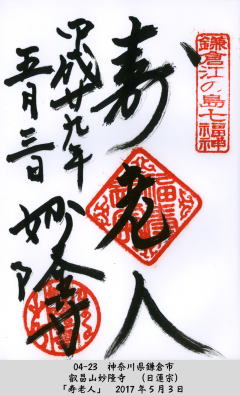 鎌倉江の島七福神
寿老人
平成廿九年
五月三日
妙隆寺
04-23　神奈川県鎌倉市
叡昌山妙隆寺　（日蓮宗）
「寿老人」　2017年5月3日